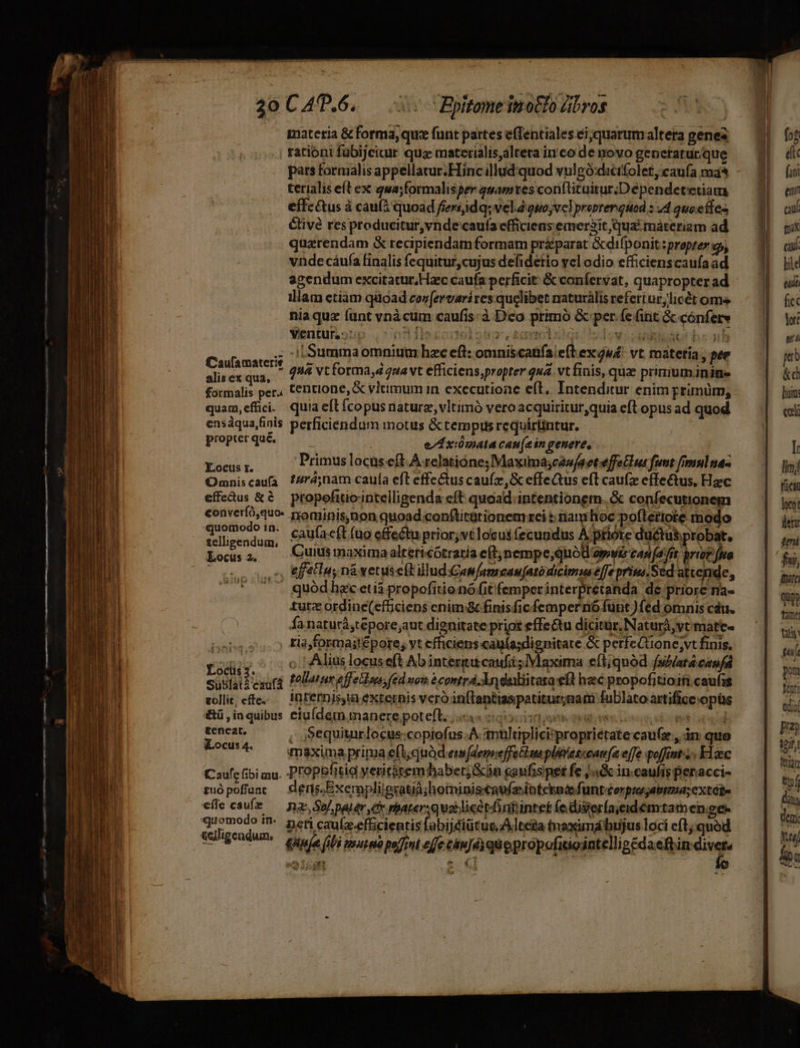 30 CAP.6. Epitome in octo libros
materia & forma, quæ sunt partes essentiales ei, quarum altera gene-
rationi subijcitur quæ materialis, altera in eo de novo generatur, que
pars formalis appellatur. Hinc illud quod vulgò dici solet, causa ma-
terialis est ex qua; formalis per quam res constituitur. Dependet etiam
effectus à causa quoad fieri, idq; vel à quo, vel propter quod: A quo effe-
ctivè res producitur, vnde causa efficiens emergit, quæ materiam ad
quærendam & recipiendam formam præparat & disponit: propter qd,
vnde causa finalis sequitur, cujus desiderio vel odio efficiens causa ad
agendum excitatur. Hæc causa perficit & conservat, quapropter ad
illam etiam quoad conservari res quælibet naturalis refertur, licèt om-
nia quæ sunt vnà cum causis à Deo primò & per se sint & conser-
ventur.
Summa omnium hæc est: omnis causa est ex quâ vt materia, per
quâ vt forma, à quâ vt efficiens, propter quâ vt finis, quæ primum in in-
tentione, & vltimum in executione est. Intenditur enim primùm,
quia est scopus naturæ, vltimò vero acquiritur, quia est opus ad quod
perficiendum motus & tempus requiruntur.
Causa materialis ex qua,
formalis per
quam, effici-
ens à qua, finis
propter quē.
Axiomata causæ in genere.
Locus 1.
Omnis causa
effectus & è
converso, quo-
quomodo in-
telligendum,
Primus locus est A relatione; Maxima, causa et effectus sunt simul na-
turâ; nam causa est effectus causæ, & effectus est causæ effectus, Hæc
propositio intelligenda est quoad intentionem & consecutionem
nominis, non quoad constitutionem rei: nam hoc posteriore modo
causa est suo effectu prior, vt locus secundus A priore ductus probat.
Locus 2.
Cuius maxima alteri cōtraria est, nempe, quòd omnis causa sit prior suo
effectu, nā vetus est illud Causam causato dicimus esse prius. Sed attende,
quòd hæc etiā propositio nō sit semper interpretanda de priore na-
turæ ordine (efficiens enim & finis sic semper nō sunt) sed omnis cau-
sa naturâ, tēpore, aut dignitate prior effectu dicitur, Naturâ, vt mate-
ria, forma; tēpore, vt efficiens causa; dignitate & perfectione, vt finis.
Locus 3.
Sublatâ causâ
tollit, effe-
ctū, in quibus
teneat.
Alius locus est Ab interitu causæ; Maxima est, quòd sublatâ causâ
tollatur effectus, sed non è contrà. Indubitata est hæc propositio in causis
internis, in externis verò instantias patitur; nam sublato artifice opus
eiusdem manere potest.
Locus 4.
Causæ sibi mu-
tuò possunt
esse causæ
quomodo in-
telligendum.
Sequitur locus copiosus A multiplici proprietate causæ, in quo
maxima prima est, quòd eiusdem effectus plures causæ esse possint. Hæc
propositio veritatem habet, & in causis per se, & in causis per acci-
dens. Exempli gratiâ, hominis causæ internæ sunt corpus, anima; exter-
næ, Sol, pater, & mater; quæ licèt sint inter se diversa, eidem tamen ge-
neri causæ efficientis subijciuntur. Altera maxima hujus loci est, quòd
causæ sibi mutuò possint esse causæ, quæ propositio intelligēda est in diver-
so